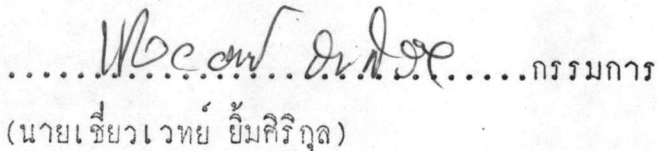 ....................................กรรมการ
(นายเชี่ยวเวทย์ ยิ้มศิริกุล)